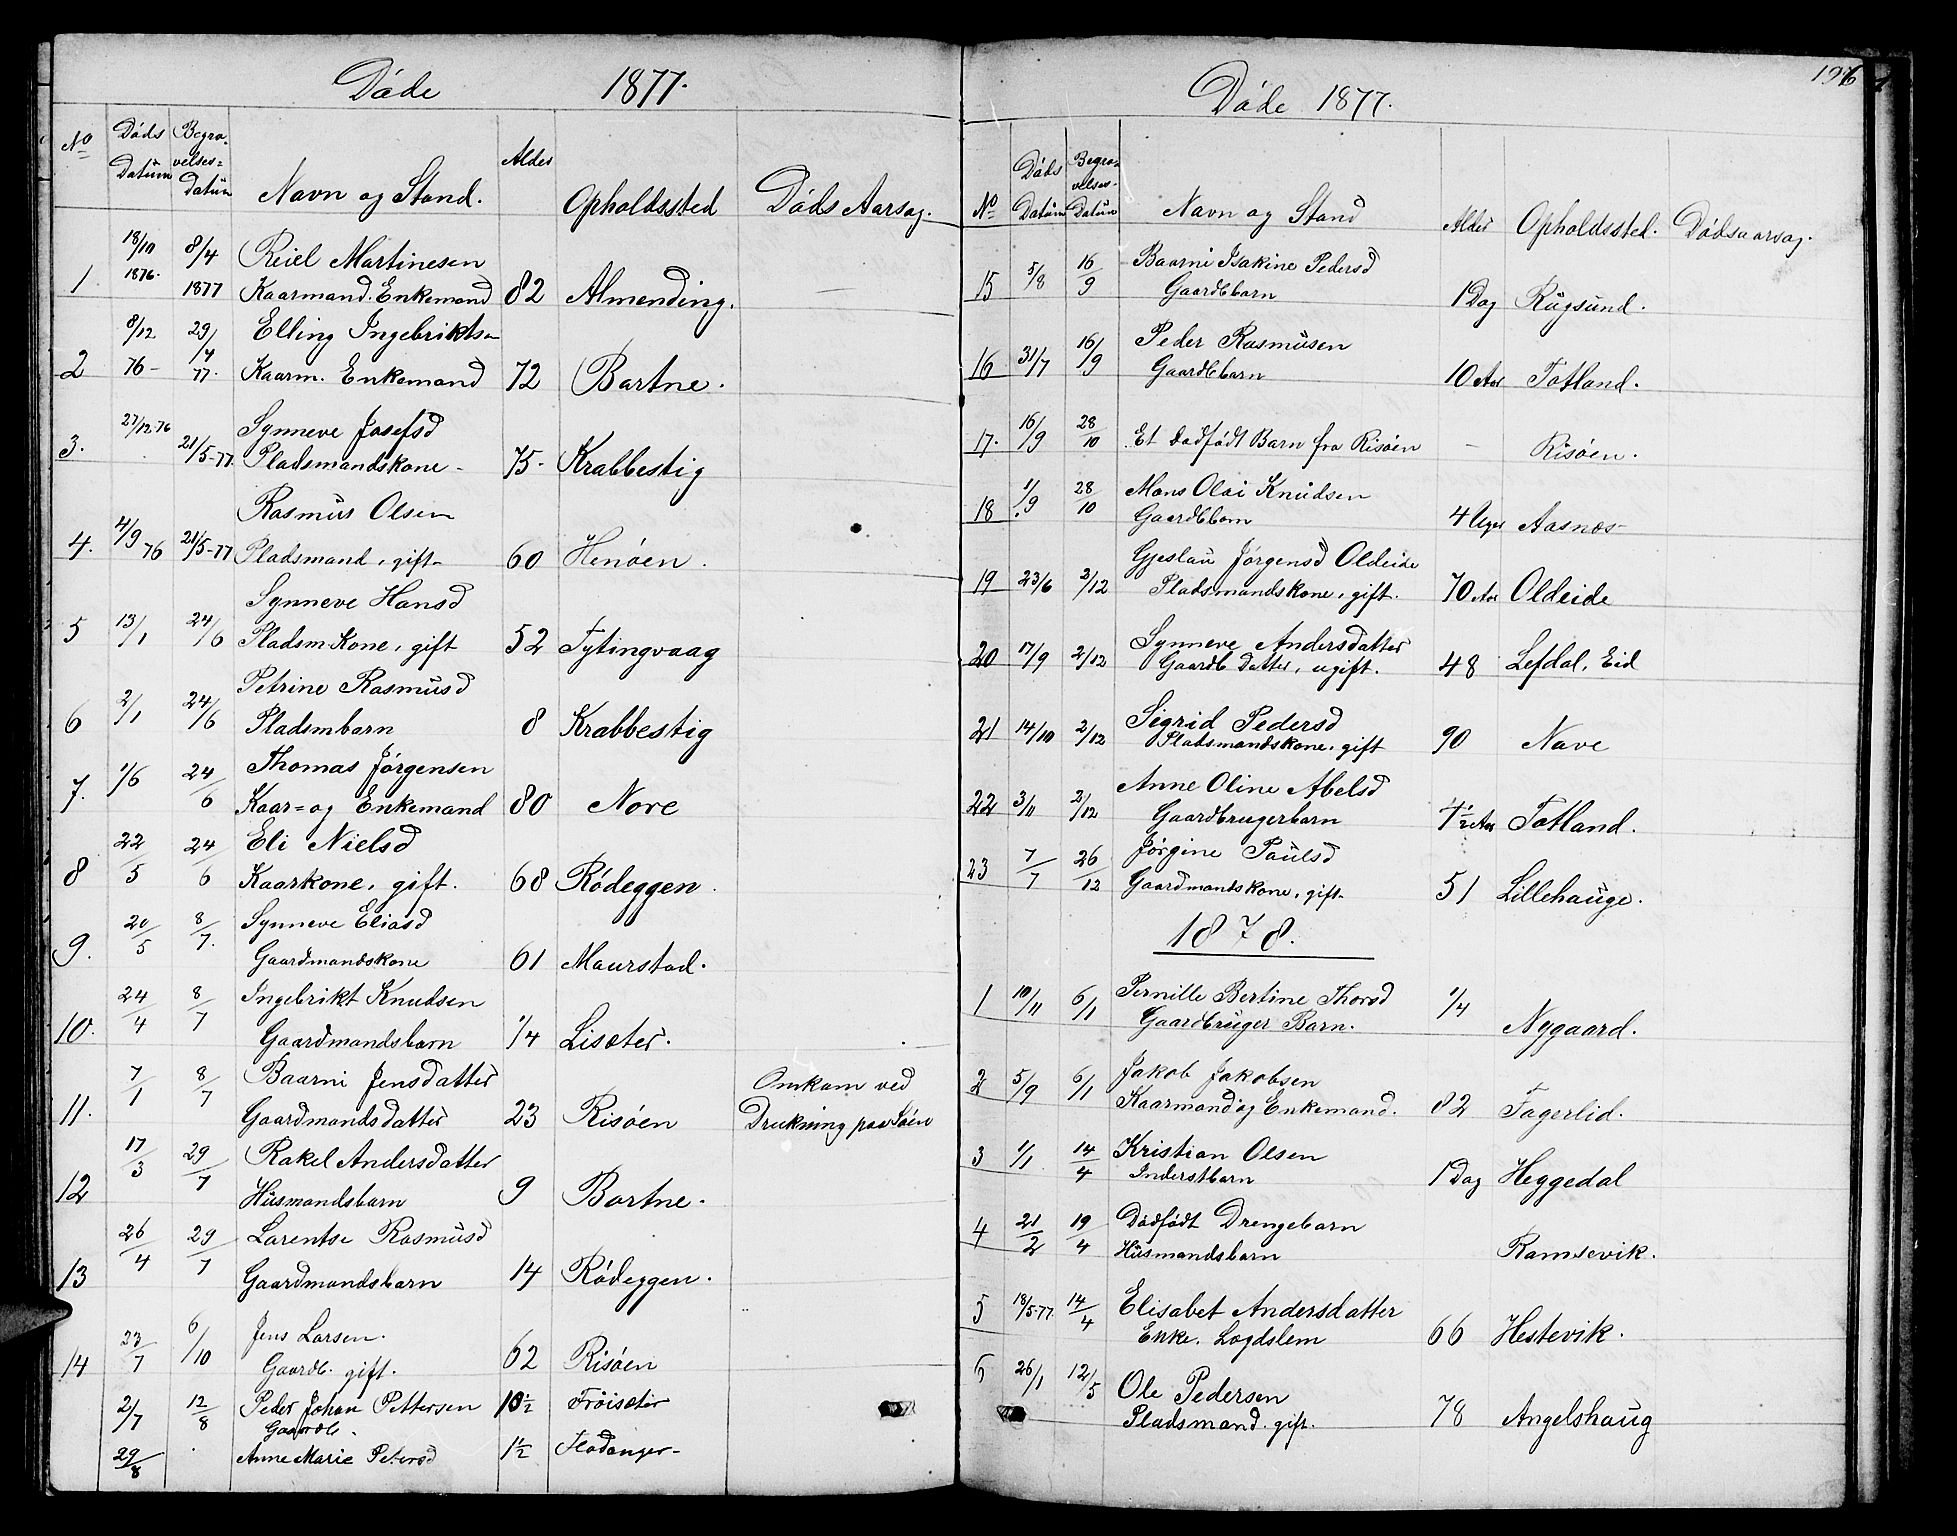 Döde 1877.
No Döds Datum Begravelses= Datum Navn og Stand. Alder Opholdssted Döds Aarsag.
18/10 8/4 Reiel Martinesen
1 1876. 1877 Kaarmand. Enkemand 82 Almending.
8/12 29/4 Elling Ingebriktsn
2 76- 77. Kaarm. Enkemand 72 Bortne.
27/12-76 Synneve Josefsd
3. 21/5-77. Pladsmandskone - 75- Krabbestig
Rasmus Olsen
4. 4/9 76 21/5-77 Pladsmand, gift- 60 Henöen.
Synneve Hansd
5 13/1 24/6 Pladsm.Kone, gift 52 Tytingvaag
Petrine Rasmusd
6 2/1 24/6 Pladsmbarn 8 Krabbestig
Thomas Jörgensen
7. 1/6 24/6 Kaar= og Enkemand 80 Nore
Eli Nielsd
8 22/5 24/6 Kaarkone, gift. 68 Rödeggen.
Synneve Eliasd
9. 20/5 8/7. Gaardmandskone 61 Maurstad.
Ingebrikt Knudsen
10. 24/4 8/7 Gaardmandsbarn 1/4 Lisæter.
Baarni Jensdatter Omkom ved
11. 7/1 8/7 Gaardmandsdatter 23 Risöen Drukning paa Söen
Rakel Andersdatter
12 17/3 29/7 Husmandsbarn 9 Bortne.
Larentse Rasmusd
13 26/4 29/7 Gaardmandsbarn 14 Rödeggen.
Jens Larsen.
14 23/7 6/10 Gaardb. gift. 62 Risöen
2/7 12/8 Peder Johan Pettersen 10½ Fröisæter
Gaardb.
29/8 Anne Marie Petersd 1½ Flodanger-
196
Döde 1877.
No Döds Datum Begravelses- Datum Navn og Stand Alder Opholdssted. Dödsaarsag.
Baarni Isakine Pedersd
15 5/8 16/9 Gaardbbarn 1 Dag Rugsund.
Peder Rasmusen
16 31/7 16/9 Gaardbbarn 10 Aar Totland.
17. 16/9 28/10 Et dödfödt Barn fra Risöen - Risöen.
Mons Olai Knudsen
18 1/9 28/10 Gaardbbarn 4 Uger Aasnæs-
Gjeslau Jörgensd Oldeide
19 23/6 2/12 Pladsmandskone, gift. 70 Aar Oldeide
Synneve Andersdatter
20 17/9 2/12 Gaardb datter, ugift. 48 Lefdal, Eid
Sigrid Pedersd
21 14/10 2/12 Pladsmandskone, gift 90 Nave
Anne Oline Abelsd
22 3/11 2/12 Gaardbrugerbarn 4½ Aar Totland.
Jörgine Paulsd
23 7/7 26/12 Gaardmandskone, gift- 51 Lillehauge.
1878.
Pernille Bertine Thorsd
1 10/11 6/1 Gaardbruger Barn. 1/4 Nygaard.
Jakob Jakobsen
2 5/9 6/1 Kaarmand og Enkemand. 82 Fagerlid.
Kristian Olsen
3 1/1 14/4 Inderstbarn 1 Dag Heggedal
Dödfödt Drengebarn
4 21/2 19/4 Husmandsbarn Ramsevik.
Elisabet Andersdatter
5 18/5-77. 14/4 Enke. Lægdslem 66 Hestevik.
Ole Pedersen
6 26/1 12/5 Pladsmand. gift. 78 Angelshaug